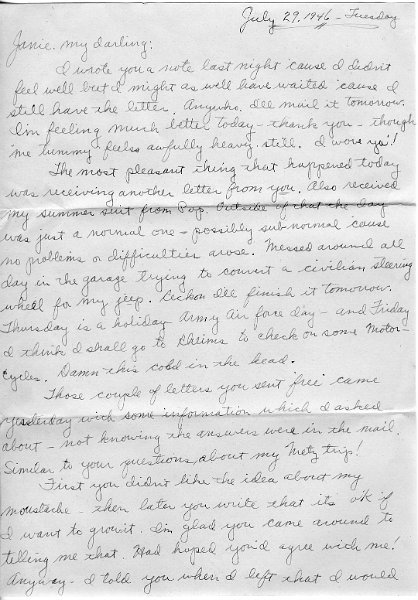 July 29, 1946 - Tuesday
Janie, my darling:
I wrote you a note last night 'cause I didn't
feel well but I might as well have waited 'cause I
still have the letter. Anywho, I'll mail it tomorrow.
I'm feeling much better today - thank you - though
me tummy feels awfully heavy still. I wors ya!
The most pleasant thing that happened today
was receiving another letter from you. Also received
my summer suit from Pop. Outside of that the day
was just a normal one - possibly sub-normal cause
no problems or difficulties arose. Messed around all
day in the garage trying to convert a civilian steering
wheel for my jeep. Reckon I'll finish it tomorrow.
Thursday is a holiday Army Air Force day - and Friday
I think I shall go to Rheims to check on some Motor-
cycles. Damn this cold in the head.
Those couple of letters you sent 'free' came
yesterday with some information which I asked
about - not knowing the answers were in the mail.
Similar to your questions about my Metz trip!
First you didn't like the idea about my
moustache - then later you write that it's ok if
I want to grow it. I'm glad you came around to
telling me that. Had hoped you'd agree with me!
Anyway - I told you when I left that I would